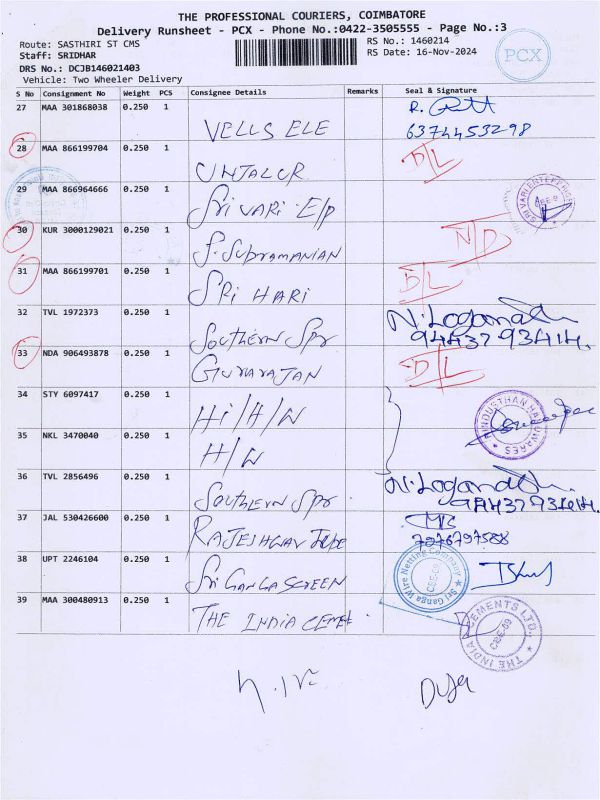 THE PROFESSIONAL COURIERS, COIMBATORE
Delivery Runsheet - PCX - Phone No.:0422-3505555 - Page No.:3
Route: SASTHIRI ST CMS
Staff: SRIDHAR
DRS No.: DCJB146021403
Vehicle: Two Wheeler Delivery
RS No.: 1460214
RS Date: 16-Nov-2024
PCX
S No Consignment No Weight PCS Consignee Details Remarks Seal & Signature
27 MAA 301868038 0.250 1 VELLS ELE
6374453298
28 MAA 866199704 0.250 1 UNJALUR D/L
29 MAA 866964666 0.250 1 Sri VARI E/P
30 KUR 3000129021 0.250 1 P. Subramanian N/D
31 MAA 866199701 0.250 1 SRI HARI D/L
32 TVL 1972373 0.250 1 Southern Spr N. Loganath
9443793414.
33 NDA 906493878 0.250 1 GURURAJAN D/L
34 STY 6097417 0.250 1 Hi/H/W
HINDUSTHAN HARDWARES
35 NKL 3470040 0.250 1 H/W
36 TVL 2856496 0.250 1 Southern Spr N. Loganath
9443793414.
37 JAL 530426600 0.250 1 RAJESHWAR
38 UPT 2246104 0.250 1 Sri GANGA SCREEN
Sri Ganga Wire Netting Company
39 MAA 300480913 0.250 1 THE INDIA CEMET
THE INDIA CEMENTS LTD. CBE-09